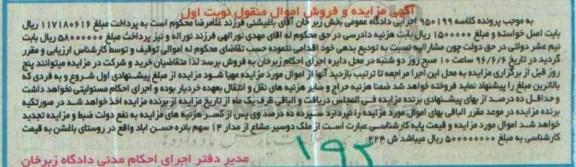 آگهی مزایده و فروش اموال منقول نوبت اول
به موجب پرونده کلاسه ۹۵۰۱۹۹ اجرایی دادگاه عمومی بخش زبرخان آقای باغیشنی فرزند غلامرضا محکوم است به پرداخت مبلغ ۱۱۷۱۸۰۶۱۶ ریال
بابت اصل خواسته و مبلغ ۱۵۰۰۰۰۰ ریال بابت هزینه دادرسی در حق محکوم له آقای مهدی نورالهی فرزند نوراله و نیز پرداخت مبلغ ۵۸۰۰۰۰۰ ریال بابت
نیم عشر دولتی در حق دولت چون مشارالیه نسبت به تودیع بدهی خود اقدامی ننموده حسب تقاضای محکوم له اموالی توقیف و توسط کارشناس ارزیابی و مقرر
گردید در تاریخ ۹۶/۶/۶ ساعت ۱۰ صبح روز دو شنبه در محل دایره اجرای احکام زبرخان به فروش برسد لذا متقاضیان خرید و شرکت در مزایده میتوانند پنج
روز قبل از برگزاری مزایده به محل این اجرا مراجعه تا ترتیب بازدید آنها از اموال مورد مزایده مهیا شود مزایده از مبلغ پیشنهادی اول شروع و به فردی که
بالاترین مبلغ را پیشنهاد نماید فروخته خواهد شد ضمنا هزینه حراج و سایر هزینه های نقل و انتقال بعهده خریدار بوده و اجرای احکام مسئولیتی نخواهد داشت
و حداقل ده درصد از بهای پیشنهادی برنده مزایده فی المجلس دریافت و الباقی ظرف یک ماه از تاریخ مزایده از برنده مزایده اخذ خواهد شد در صورتیکه
برنده مزایده در موعد مقرر الباقی بهای اموال مورد مزایده را نپردازد سپرده ده درصد وی پس از کسر هزینه های مزایده به نفع دولت ضبط و مزایده تجدید
خواهد شد اموال مورد مزایده و قیمت پایه کارشناسی عبارت است از ملک دوسیر مشاع از مدار ۱۴ سهم باتره حسن اباد واقع در روستای باغشن به قیمت
کارشناسی به مبلغ ۵۰۰۰۰۰۰۰ ریال میباشد ش ۲۲۴
۱۹۲
مدیر دفتر اجرای احکام مدنی دادگاه زبرخان